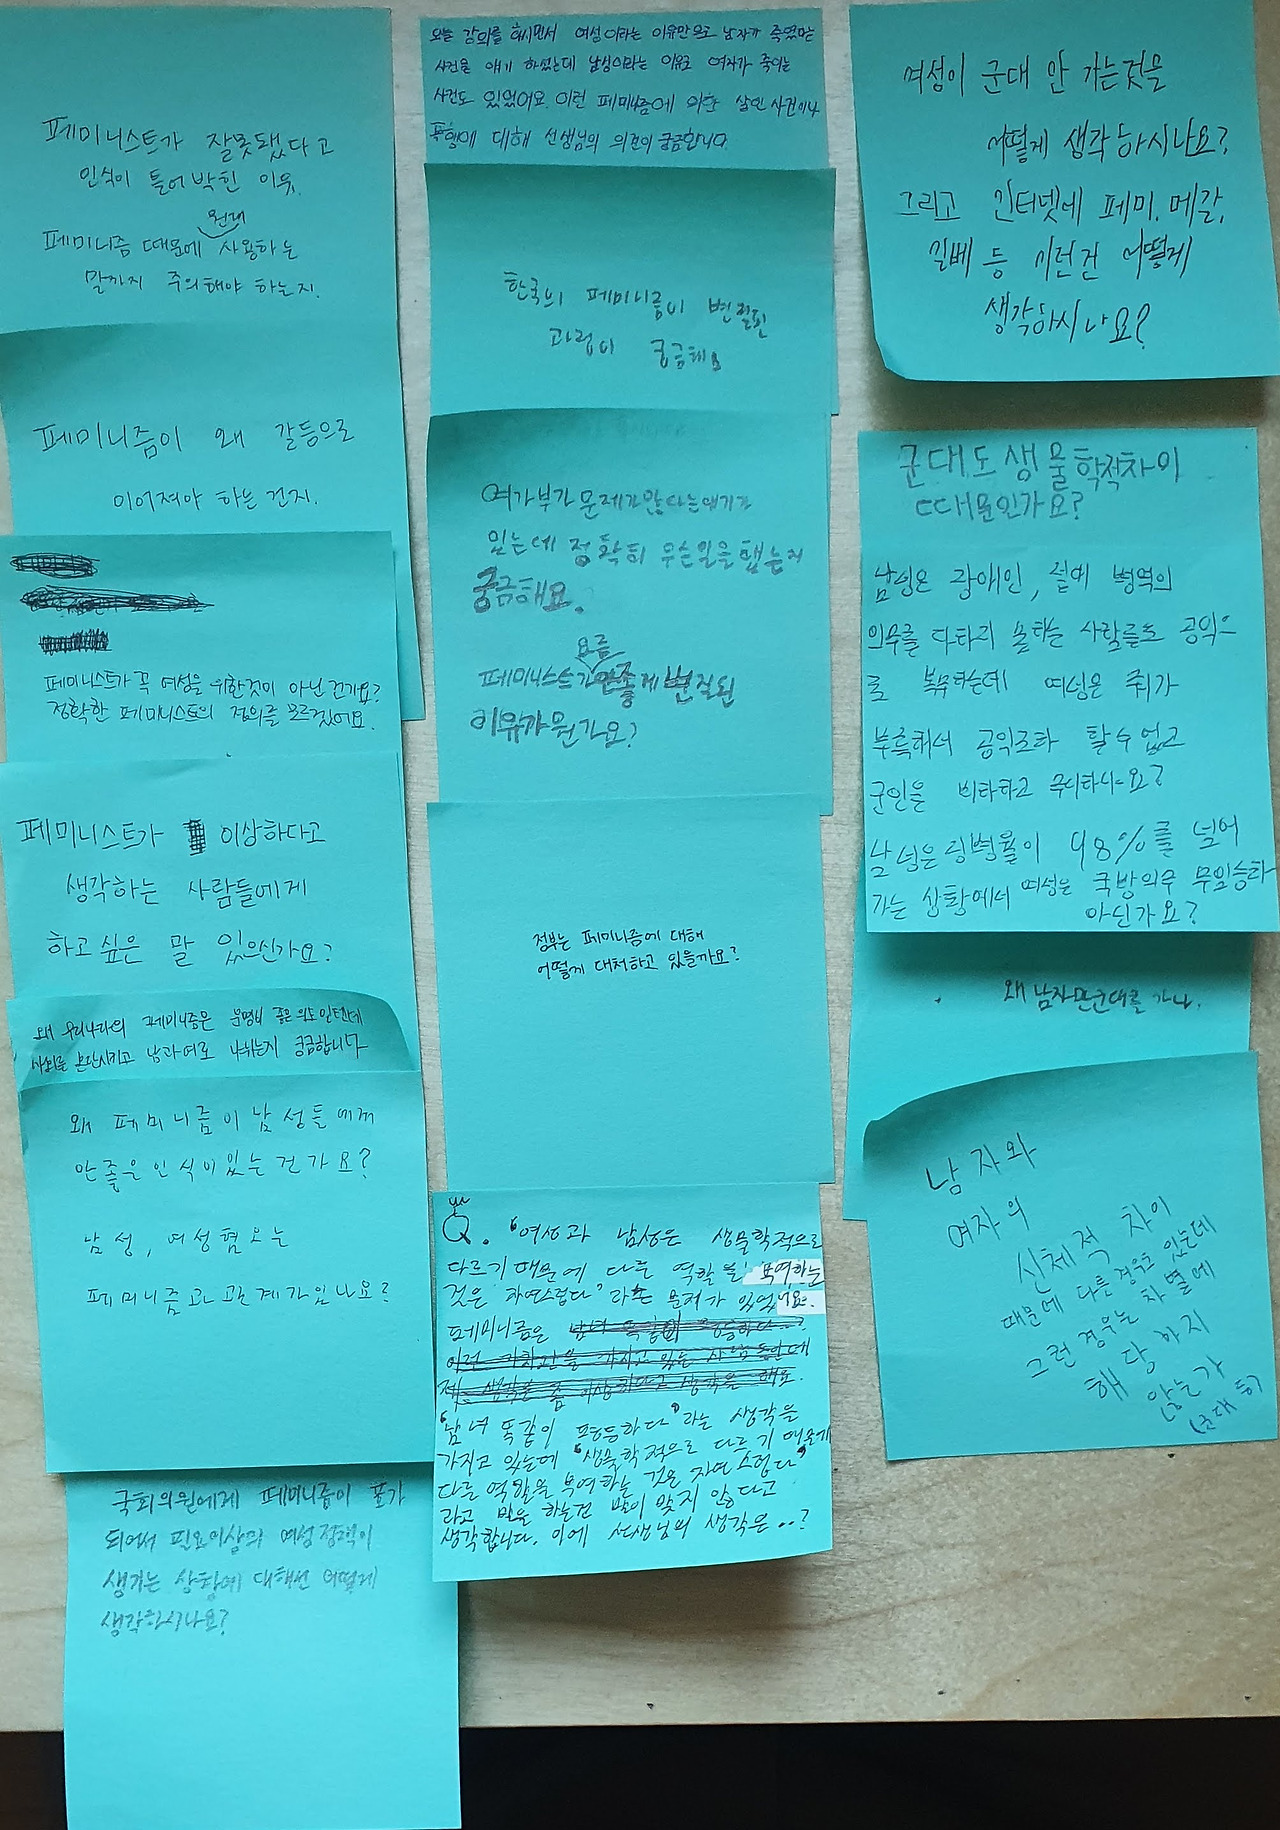 페미니스트가 잘못됐다고
인식이 틀어박힌 이유.
원래
페미니즘 때문에 사용하는
말까지 주의해야 하는지.
페미니즘이 왜 갈등으로
이어져야 하는 건지.
페미니스트가 꼭 여성을 위한것이 아닌 건가요?
정확한 페미니스트의 정의를 모르겠어요.
페미니스트가 이상하다고
생각하는 사람들에게
하고 싶은 말 있으신가요?
왜 우리나라의 페미니즘은 분명히 좋은 의도인텐데
사회를 분단시키고 남과여로 나뉘는지 궁금합니다
왜 페미니즘이 남성들에게
안좋은 인식이 있는 건가요?
남성, 여성혐오는
페미니즘과 관계가 있나요?
국회의원에게 페미니즘이 표가
되어서 필요이상의 여성정책이
생기는 상황에 대해선 어떻게
생각하시나요?
오늘 강의를 하시면서 여성이라는 이유만으로 남자가 죽였다는
사건을 얘기 하셨는데 남성이라는 이유로 여자가 죽이는
사건도 있었어요. 이런 페미니즘에 의한 살인사건이나
폭행에 대해 선생님의 의견이 궁금합니다.
한국의 페미니즘이 변질된
과정이 궁금해요
여가부가 문제가많다는얘기가
있는데 정확히 무슨일을 했는지
궁금해요.
요즘
페미니스트가 안좋게 변질된
이유가 뭔가요?
정부는 페미니즘에 대해
어떻게 대처하고 있을까요?
Q. "여성과 남성은 생물학적으로
다르기 때문에 다른 역할을 부여하는
것은 자연스럽다"라는 문제가 있었어요.
페미니즘은
"남녀 똑같이 평등하다"라는 생각을
가지고 있는데 "생물학적으로 다르기 때문에
다른 역할을 부여하는 것은 자연스럽다"
라고 말을 하는건 말이 맞지 않다고
생각합니다. 이에 선생님의 생각은..?
여성이 군대 안 가는것을
어떻게 생각하시나요?
그리고 인터넷에 페미, 메갈,
일베 등 이런건 어떻게
생각하시나요?
군대도 생물학적차이
때문인가요?
남성은 장애인, 설에 병역의
의무를 다하지 못하는 사람들도 공익으
로 복무하는데 여성은 뭐가
부족해서 공익조차 할수 없고
군인을 비하하고 무시하나요?
남성은 징병율이 98%를 넘어
가는 상황에서 여성은 국방의무 무임승차
아닌가요?
왜 남자만군대를 가나.
남자와
여자의
신체적 차이
때문에 다른 경우도 있는데
그런 경우는 차별에
해당 하지
않는가
(군대 등)